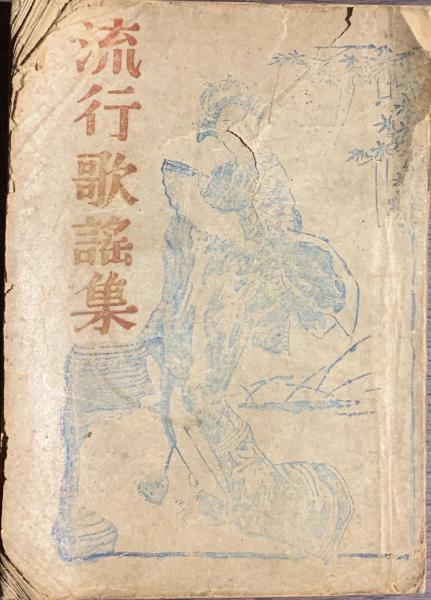 流行歌謡集